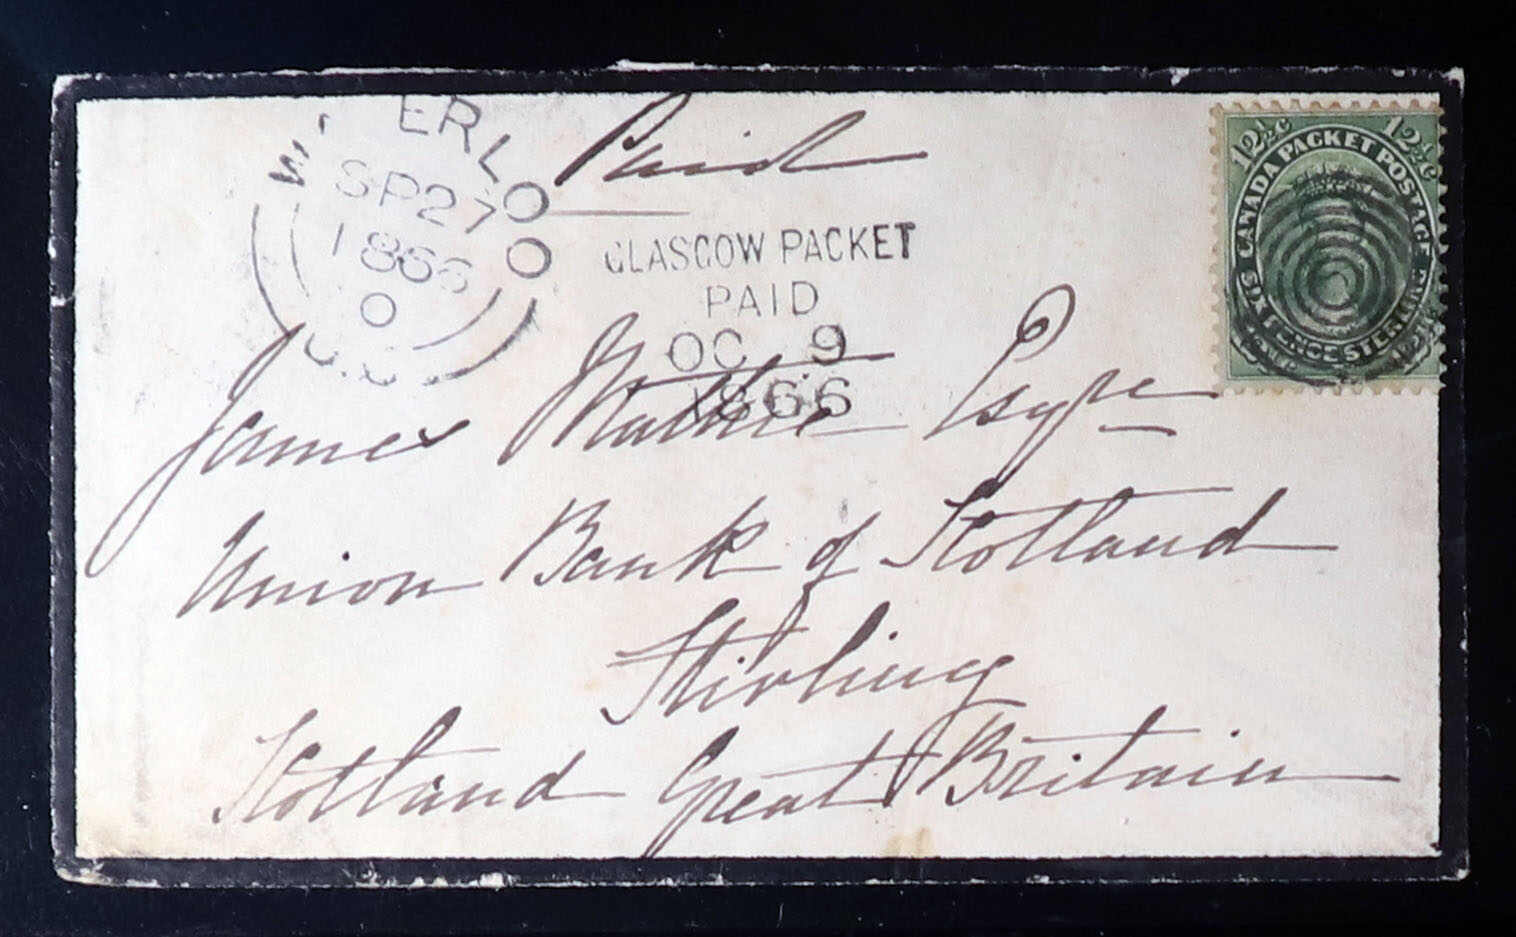 WATERLOO
SP27
1866
O
U.C.
Paid
GLASGOW PACKET
PAID
OC 9
1866
12½c 12½c
CANADA PACKET POSTAGE
SIX PENCE STERLING
James Mathie Esqre
Union Bank of Scotland
Stirling
Scotland Great Britain